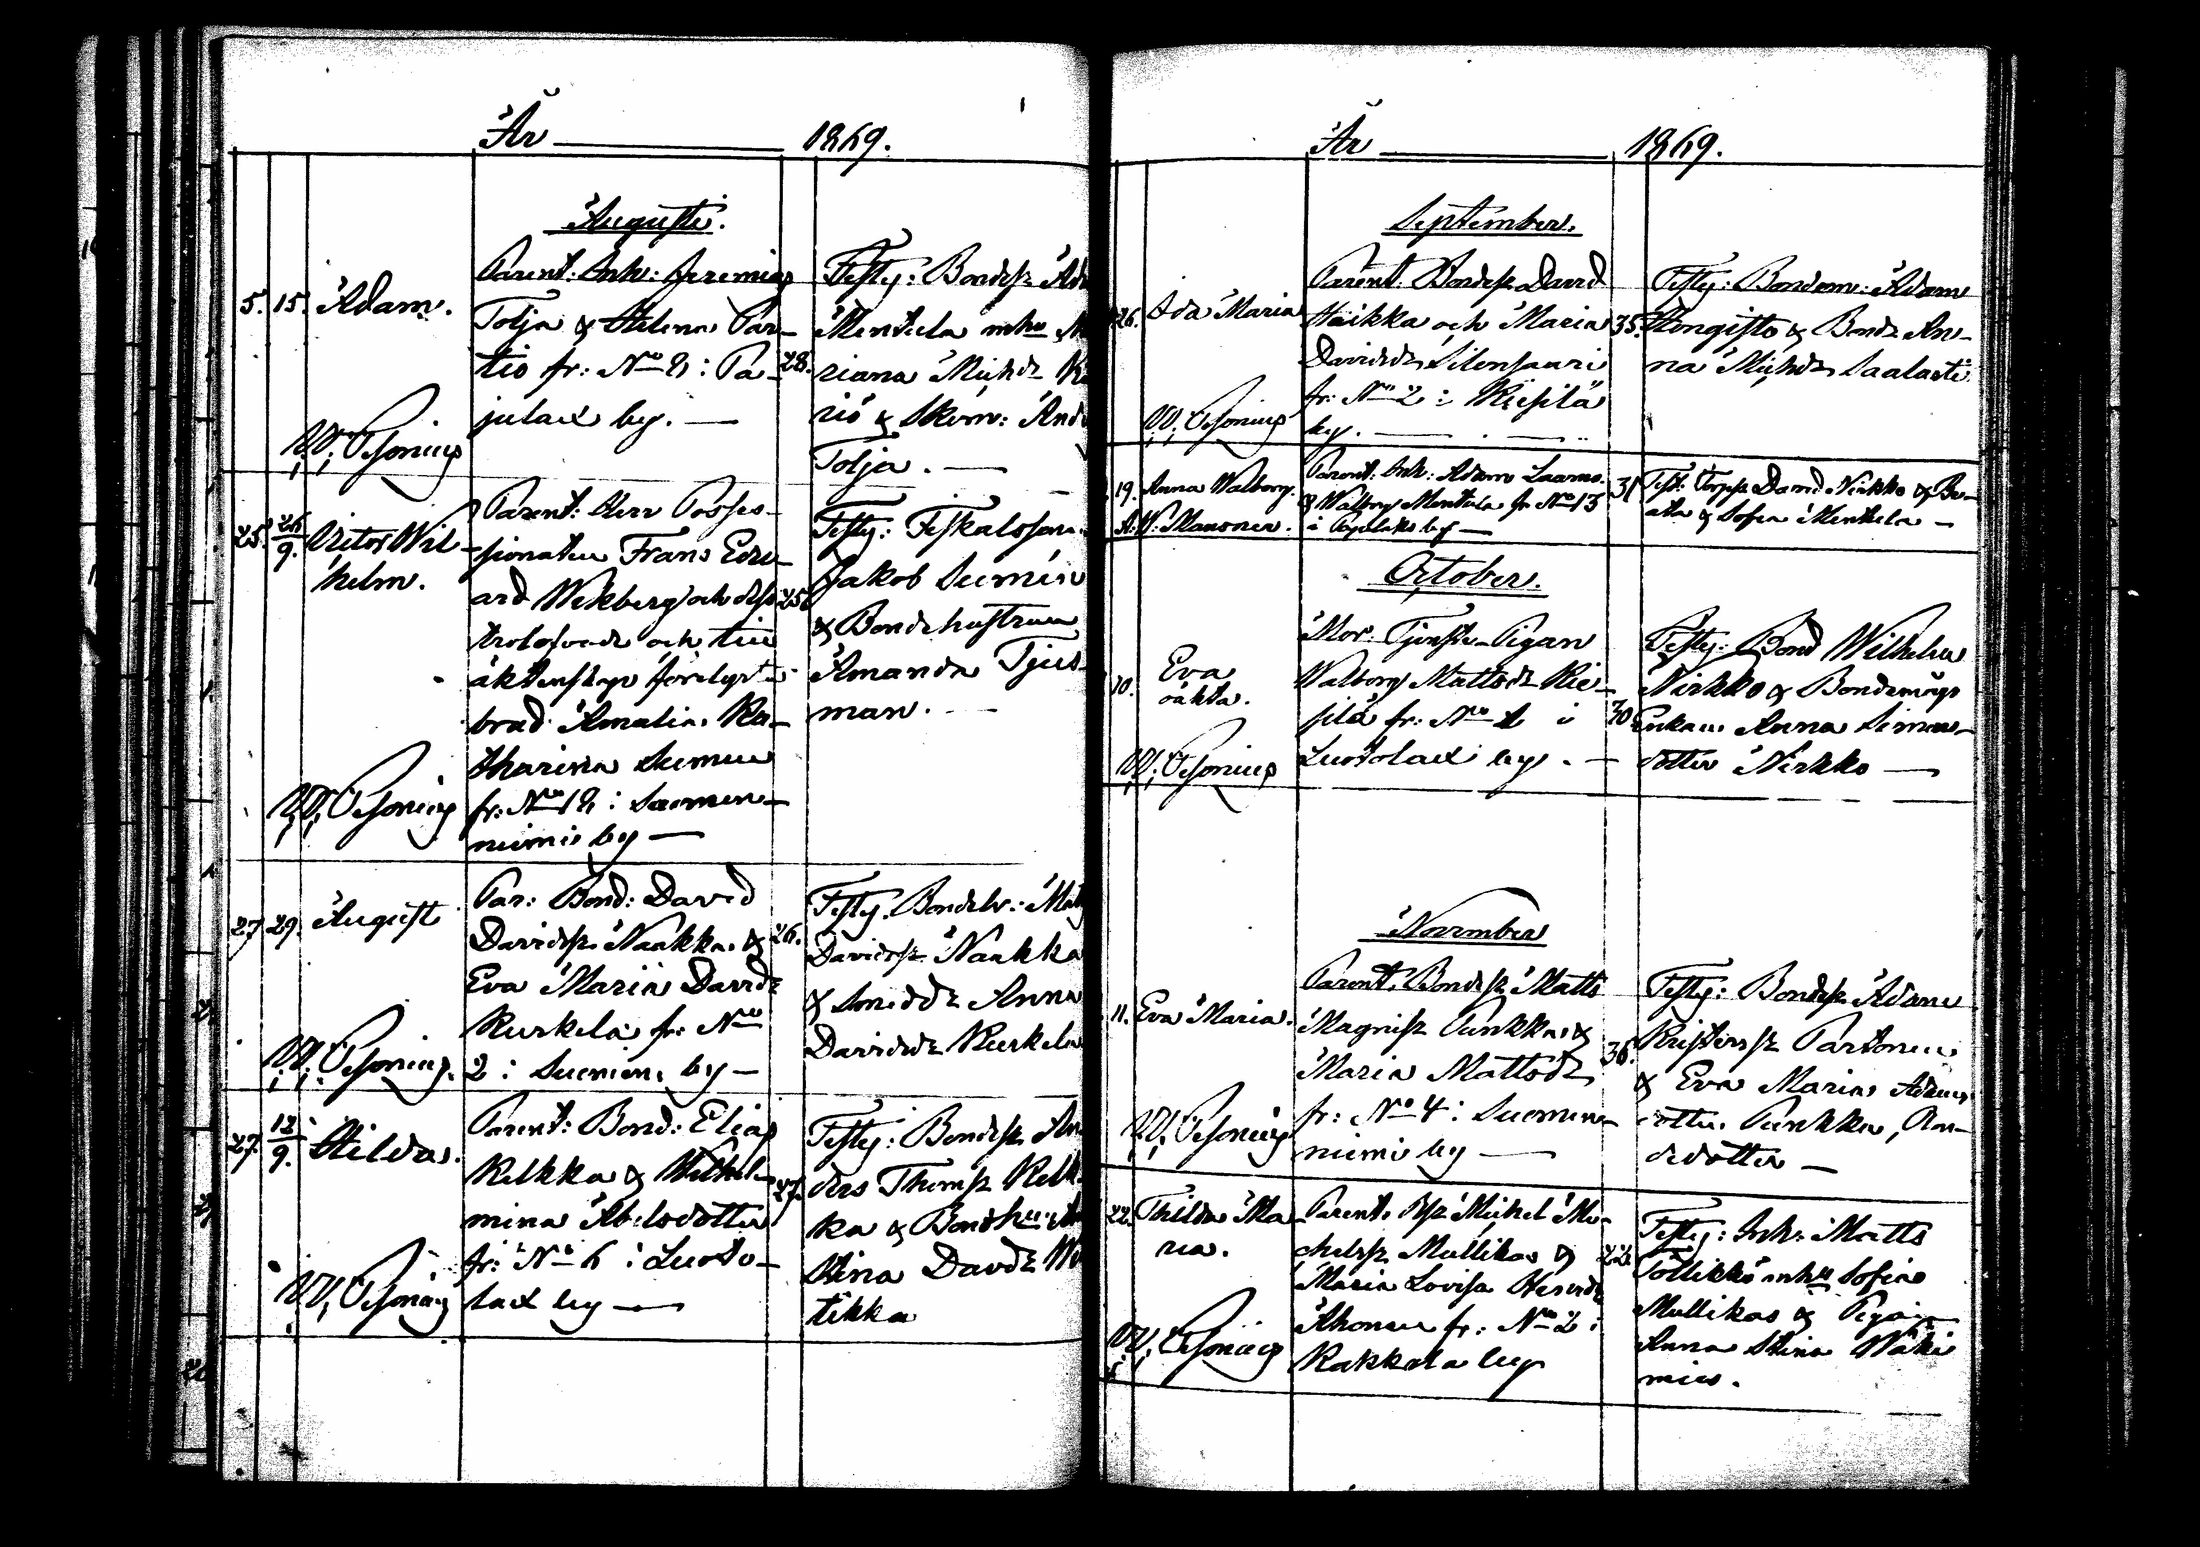 År 1869.
Augusti.
5. 15. Adam.
Parent: Inh: Jeremias
Tolja & Helena Par-
tio fr: No 8 i Pa-
julax by. —
28.
Testy: Bondesz Ad
Mentula mhu
riana Michdr
rio & Skom: And
Tolja. —
W. Pesonius
25. 26/9. Victor Wil-
helm.
Parent: Herr Posses-
sionaten Frans Edu-
ard Wekberg och dess
trolofvade och till
äktenskap förlyst
brud Amalia Ka-
tharina Sumen
fr: No 18 i Suomen-
niemi by —
25.
Testy: Fiskalssom.
Jakob Sumen
& Bondehustrun
Amanda Tjus-
man. —
W. Pesonius
27. 29. August
Par: Bond: David
Davidsz Naakka &
Eva Maria Davdr
Kurkela fr: No
2 i Suomen. by —
26.
Testy: Bondelr: Mat
Davidsz Naakka
& Soneddr Anna
Daviddr Kurkela
W. Pesonius.
27. 12/9. Hilda.
Parent: Bond: Elias
Relkka & Wilhel-
mina Abelsdotter
fr: No 6 i Luoto-
lax by —
27.
Testy: Bondesz An
ders Thomsz Relk
ka & Bondhu
Stina Davdr
tikka
W. Pesonius
År 1869.
September.
26. Ida Maria
Parent: Bondesz David
Häikka och Maria
Daviddr Silensaari
fr: No 2 i Kiesilä
by. —
35.
Testy: Bondem: Adam
Hongisto & Bondr An-
na Michdr Saalasti
W. Pesonius
19. Anna Walborg.
Parent: Inh: Adam Laamo.
& Walborg Mentula fr No 13
i Pajulaks by —
31
Test: Torpsz David Nirkko & Be-
ata & Sofia Mentula —
A. W. Manonen.
October.
10. Eva
oäkta.
Mor: Tjenste-Pigan
Walborg Mattsdr Kie-
silä fr: No 1 i
Luotolax by. —
30
Testy: Bond Wilhelm
Nirkko & Bondemågs
Enkan Anna Simons-
dotter Nirkko —
W. Pesonius
November
11. Eva Maria.
Parent: Bondesz Matts
Magnisz Punkka &
Maria Mattsdr
fr: No 4 i Suomen-
niemi by —
36.
Testy: Bondesz Adam
Kristersz Partonen
& Eva Maria Adams
dotter Punkka, Bon-
dedotter —
W. Pesonius
22. Thilda Ma-
ria.
Parent: Bsz Michel Mi-
chelsz Mullikas &
Maria Lovisa Hinrdr
Ahonen fr: No 2 i
Kakkola by
22
Testy: Inh: Matts
Tollikko mhu Sofia
Mullikas & Pigan
Anna Stina Wäki
mies.
W. Pesonius